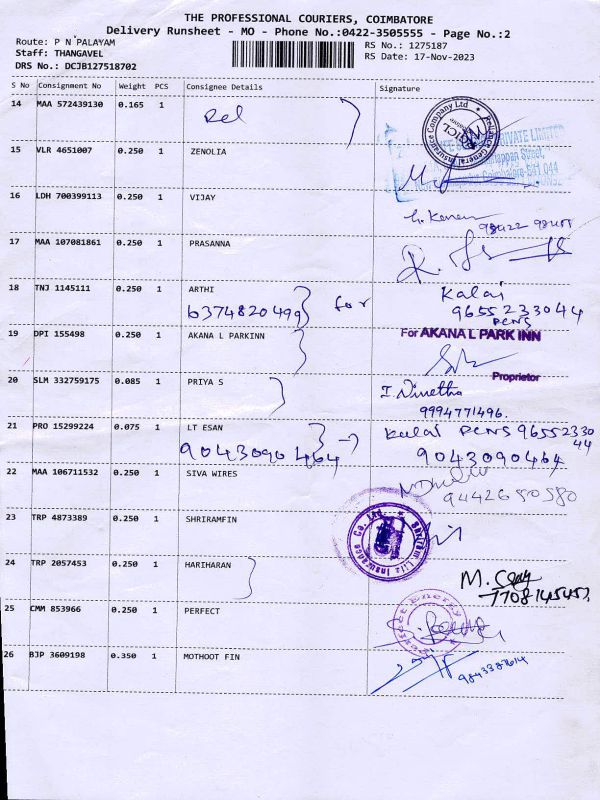 THE PROFESSIONAL COURIERS, COIMBATORE
Delivery Runsheet - MO - Phone No.:0422-3505555 - Page No.:2
Route: P N PALAYAM
Staff: THANGAVEL
DRS No.: DCJB127518702
RS No.: 1275187
RS Date: 17-Nov-2023
S No Consignment No Weight PCS Consignee Details Signature
14 MAA 572439130 0.165 1 Rel
Reliance General Insurance Company Ltd
PRIVATE LIMITED
Street,
Coimbatore-641 044
15 VLR 4651007 0.250 1 ZENOLIA
16 LDH 700399113 0.250 1 VIJAY
17 MAA 107081861 0.250 1 PRASANNA
18 TNJ 1145111 0.250 1 ARTHI Kalai
6374820499 for 9655233044
PCNS
19 DPI 155498 0.250 1 AKANA L PARKINN For AKANA L PARK INN
Proprietor
20 SLM 332759175 0.085 1 PRIYA S
9994771496.
21 PRO 15299224 0.075 1 LT ESAN Kalai PCNS 9655233044
9043090464 9043090464
22 MAA 106711532 0.250 1 SIVA WIRES
9442650580
23 TRP 4873389 0.250 1 SHRIRAMFIN
Shriram Life Insurance Co. Ltd.
24 TRP 2057453 0.250 1 HARIHARAN
25 CMM 853966 0.250 1 PERFECT
Perfect Energy
26 BJP 3609198 0.350 1 MOTHOOT FIN